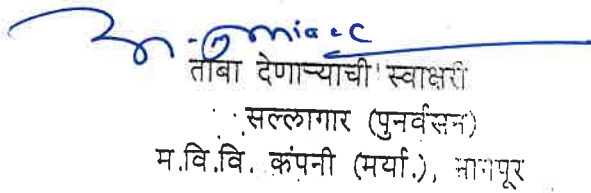 ताबा देणाऱ्याची स्वाक्षरी
सल्लागार (पुनर्वसन)
म.वि.वि. कंपनी (मर्या.), नागपूर